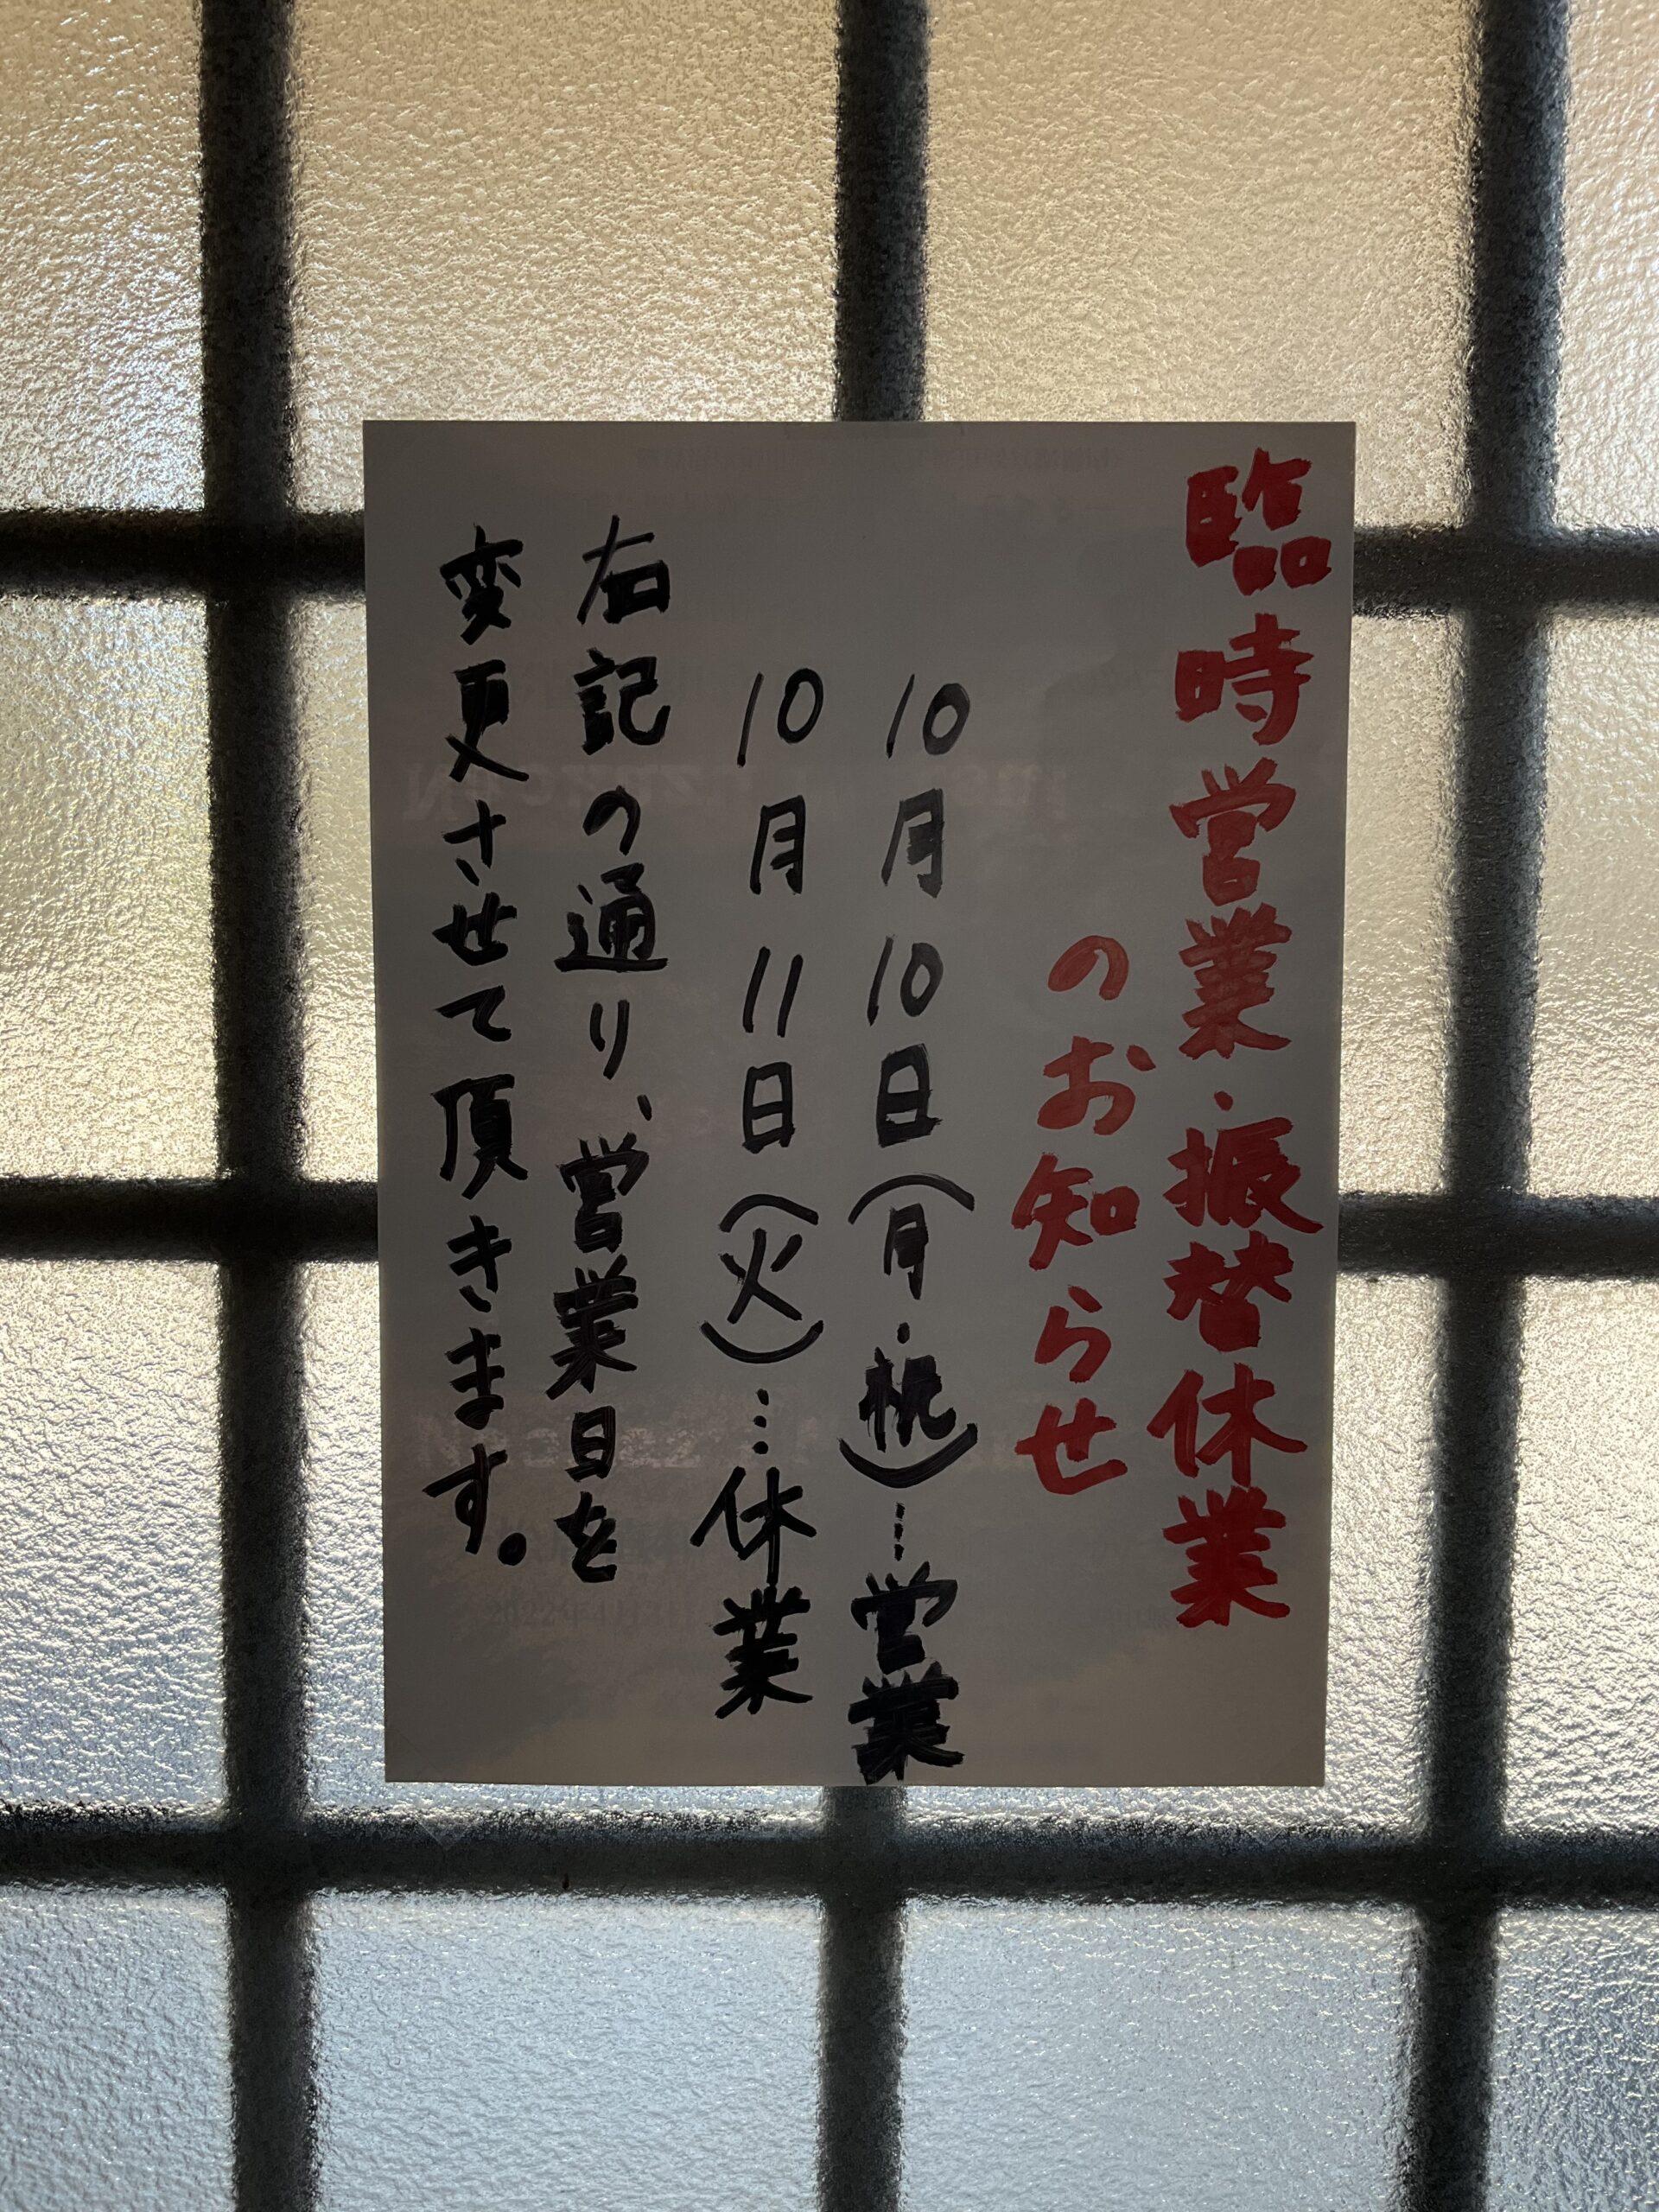 臨時営業・振替休業
のお知らせ
10月10日(月・祝)…営業
10月11日(火)…休業
右記の通り、営業日を
変更させて頂きます。